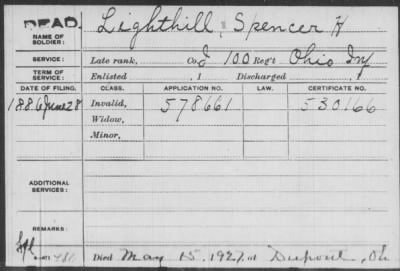 DEAD.
NAME OF SOLDIER: Lighthill, Spencer H
SERVICE: Late rank, Co. I 100 Reg't Ohio Inf
TERM OF SERVICE: Enlisted , 1 Discharged , 1
DATE OF FILING. CLASS. APPLICATION NO. LAW. CERTIFICATE NO.
1886 June 28 Invalid, 578661 530166
Widow,
Minor,
ADDITIONAL SERVICES:
REMARKS:
Died May 15, 1927, at Dupont, Oh